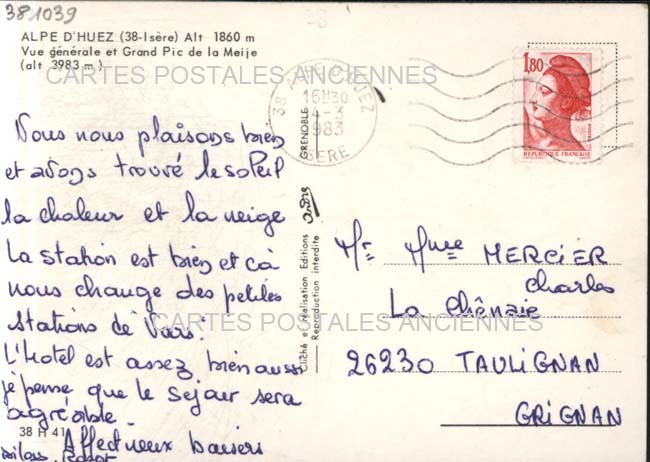 381039
38
ALPE D'HUEZ (38-Isère) Alt 1860 m
Vue générale et Grand Pic de la Meije
(alt 3983 m)
CARTES POSTALES ANCIENNES
Nous nous plaisons bien
et avons trouvé le soleil
la chaleur et la neige
La station est bien et cà
nous change des petites
stations de Vars.
L'Hotel est assez bien aussi
je pense que le sejour sera
agréable.
Affectueux baisers
38 H 41
38 ALPE D'HUEZ
16H30
4-3
1983
ISERE
1,80
REPUBLIQUE FRANÇAISE
GRENOBLE
Editions
Cliché e réalisation
Reproduction interdite
Mr Mme MERCIER
Charles
La Chênaie
CARTES POSTALES ANCIENNES
26230 TAULIGNAN
GRIGNAN